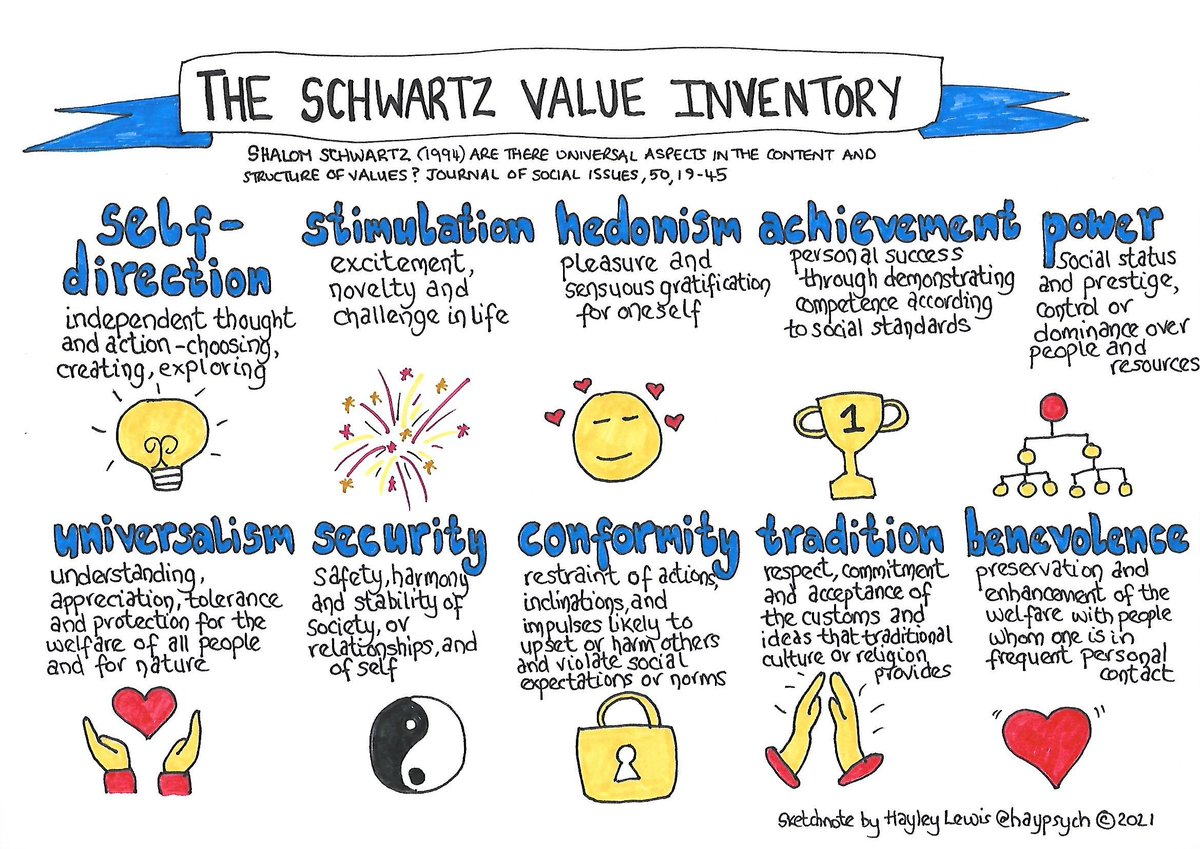 THE SCHWARTZ VALUE INVENTORY
SHALOM SCHWARTZ (1994) ARE THERE UNIVERSAL ASPECTS IN THE CONTENT AND
STRUCTURE OF VALUES? JOURNAL OF SOCIAL ISSUES, 50, 19-45
self-
direction
independent thought
and action-choosing,
creating, exploring
stimulation
excitement,
novelty and
challenge in life
hedonism
pleasure and
sensuous gratification
for oneself
achievement
personal success
through demonstrating
competence according
to social standards
1
power
Social status
and prestige,
control or
dominance over
people and
resources
universalism
understanding,
appreciation, tolerance
and protection for the
welfare of all people
and for nature
security
Safety, harmony
and stability of
society, or
relationships, and
of self
conformity
restraint of actions,
inclinations, and
impulses likely to
upset or harm others
and violate social
expectations or norms
tradition
respect, commitment
and acceptance of
the customs and
ideas that traditional
culture or religion
provides
benevolence
preservation and
enhancement of the
welfare with people
whom one is in
frequent personal
contact
Sketchnote by Hayley Lewis @haypsych © 2021